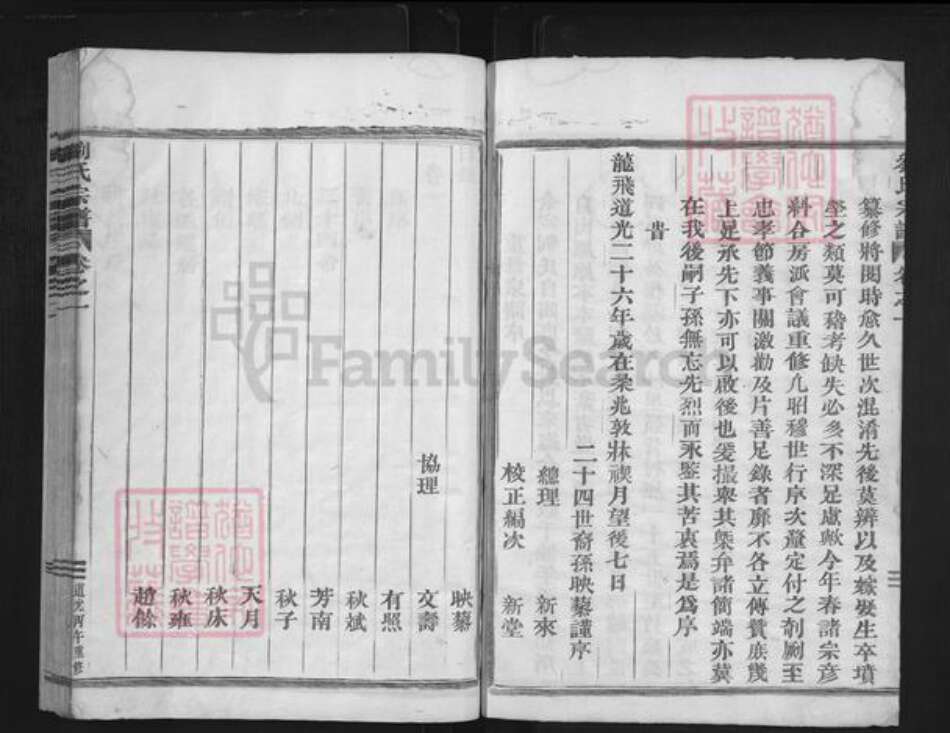 劉氏宗譜 卷之一
纂修將閱時愈久世次混淆先後莫辨以及嫁娶生卒墳
塋之類莫可稽考缺失必多不深足慮歟今年春諸宗彥
糾合房派會議重修凡昭穆世行序次釐定付之剞劂至
忠孝節義事關激勸及片善足錄者靡不各立傳贊庶幾
上足承先下亦可以啟後也爰撮舉其槩弁諸簡端亦冀
在我後嗣子孫無忘先烈而永鑒其苦衷焉是為序
旹
龍飛道光二十六年歲在柔兆敦牂禊月望後七日
二十四世裔孫映藜謹序
總理 新來
校正編次 新堂
映藜
協理 文壽
有照
秋斌
芳南
秋子
天月
秋床
秋雍
趙餘
劉氏宗譜 卷之一 道光丙午重修
FamilySearch